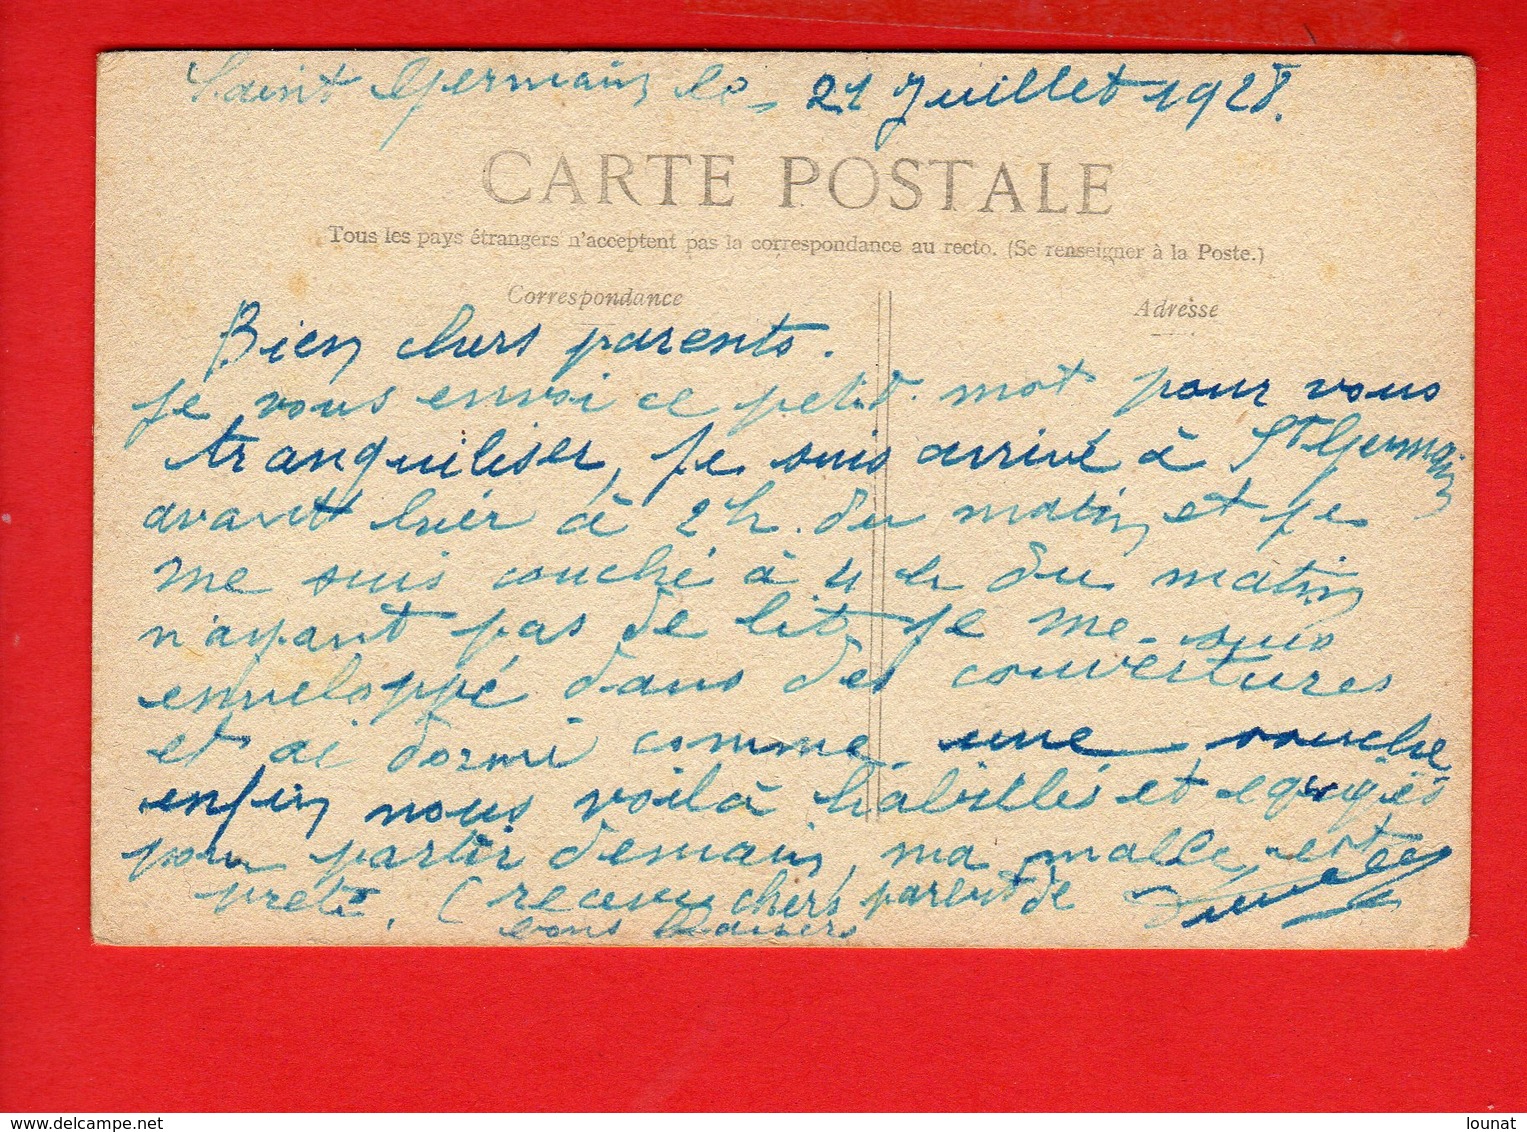 Saint Germain le 21 Juillet 1928.
CARTE POSTALE
Tous les pays étrangers n'acceptent pas la correspondance au recto. (Se renseigner à la Poste.)
Correspondance
Adresse
Bien chers parents.
je vous envoi ce petit mot pour vous
tranquiliser, je suis arrivé à St Germain
avant hier à 2 h. du matin et je
me suis couché à 4 h du matin
n'ayant pas de lit, je me suis
enveloppé dans des couvertures
et ai dormi comme une souche
enfin nous voilà habillés et equipés
pour partir demain, ma malle est
prete. (recevez chers parent de
bons baisers
delcampe.net
lounat